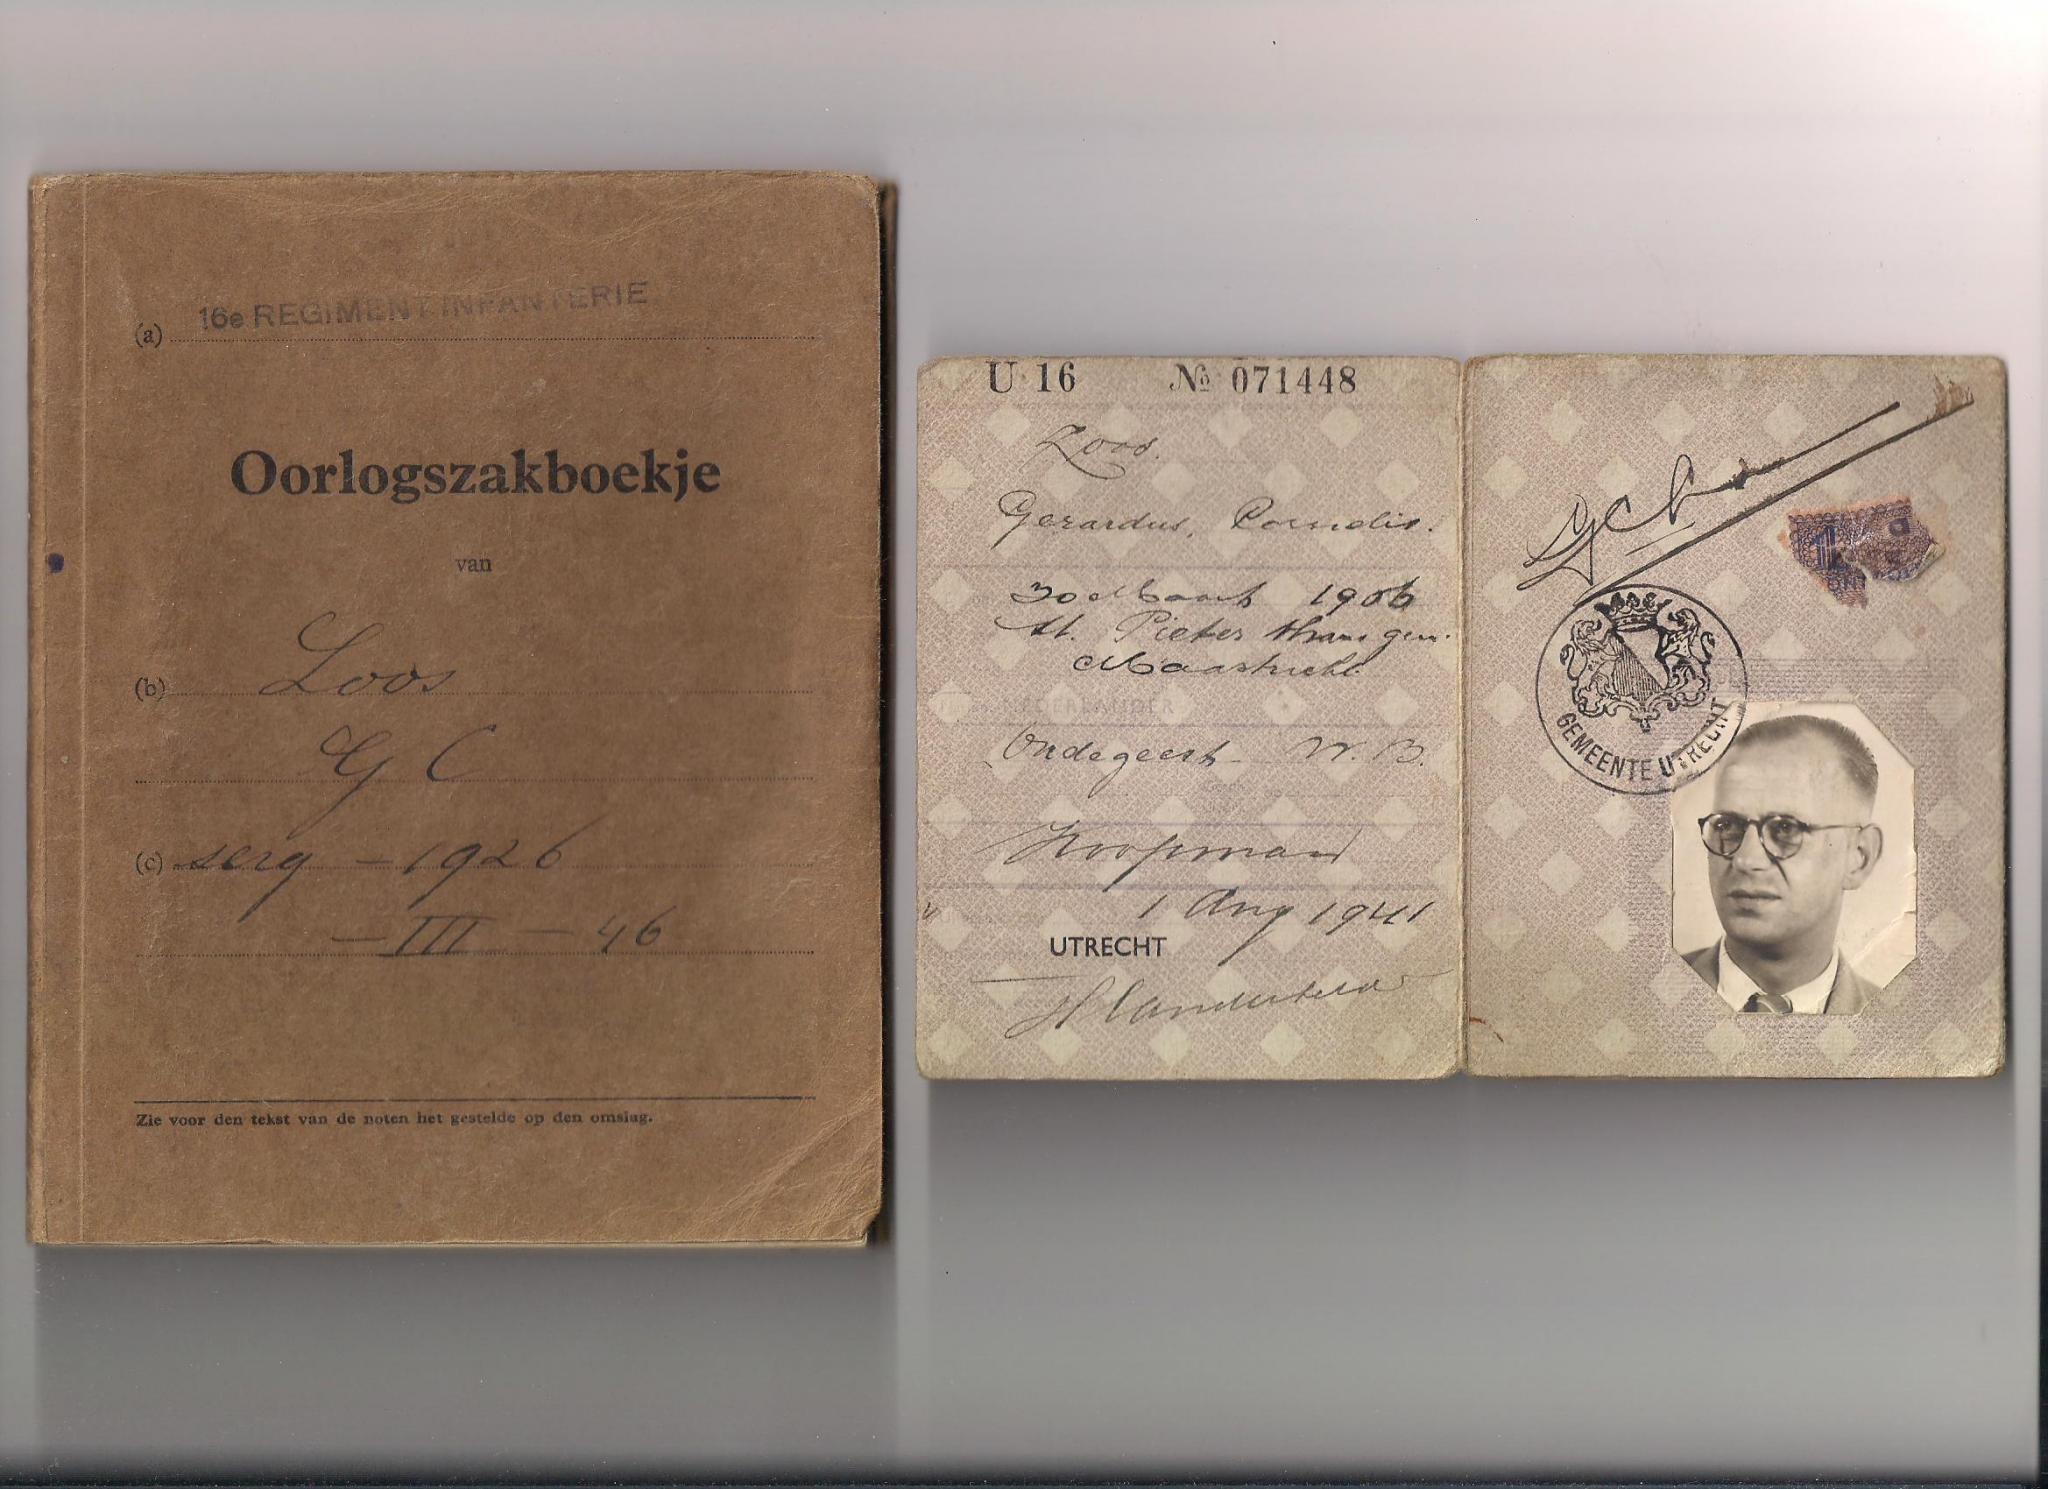 (a) 16e REGIMENT INFANTERIE
Oorlogszakboekje
van
(b) Loos
G C
(c) serg - 1926
- III - 46
Zie voor den tekst van de noten het gestelde op den omslag.
U 16 № 071448
Loos.
Gerardus, Cornelis.
30 Maart 1906
St. Pieter thans gem.
Maastricht
NEDERLANDER
Oudegeest W. B.
Koopman
1 Aug 1941
UTRECHT
GEMEENTE UTRECHT
1